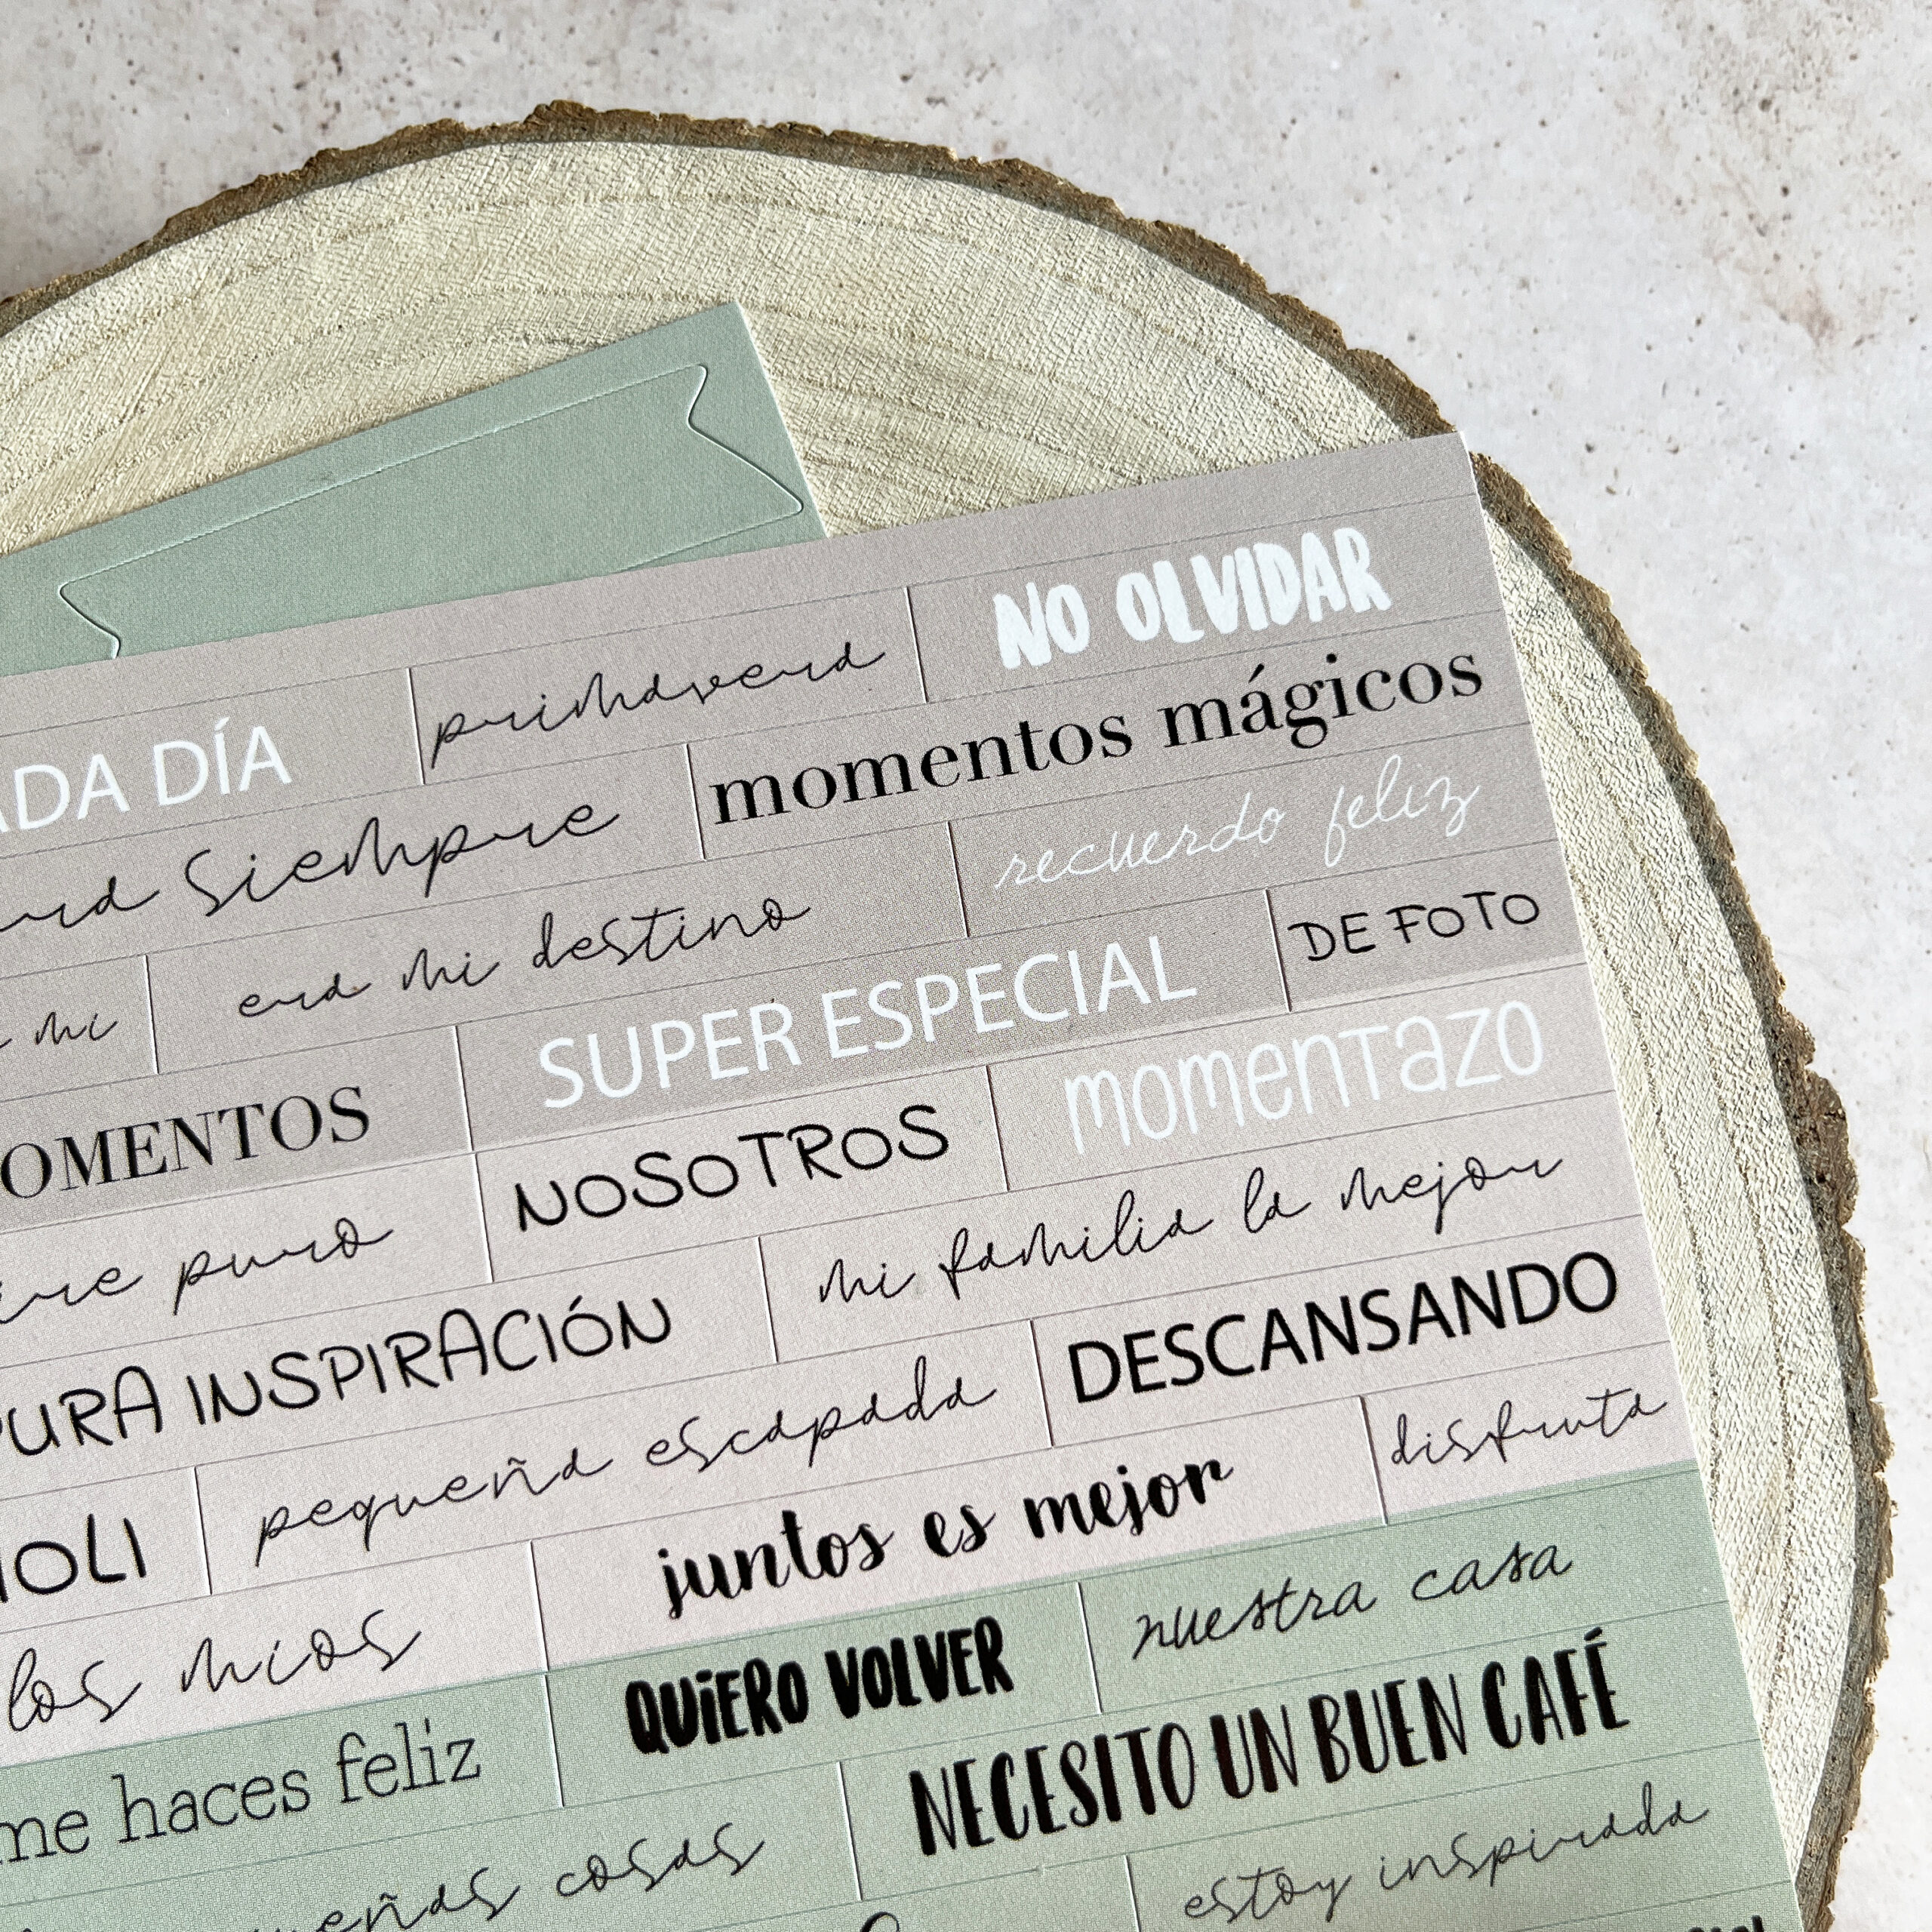 DÍA primavera NO OLVIDAR
siempre momentos mágicos
mi era mi destino recuerdo feliz
SUPER ESPECIAL DE FOTO
NOSOTROS momentazo
puro mi familia la mejor
INSPIRACIÓN DESCANSANDO
pequeña escapada disfruta
juntos es mejor
los míos nuestra casa
QUIERO VOLVER
me haces feliz NECESITO UN BUEN CAFÉ
cosas estoy inspirada